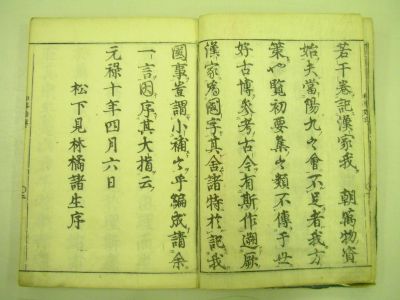 若干巻記漢家我　朝寓物資
始夫當陽九之會不足者我方
策也覽初要集之類不傳于世
好古博參考古今有斯作遡厥
漢家爲國字其舍諸特於記我
國事豈謂小補之乎編成請余
一言因序其大指云
元禄十年四月六日
松下見林橘諸生序